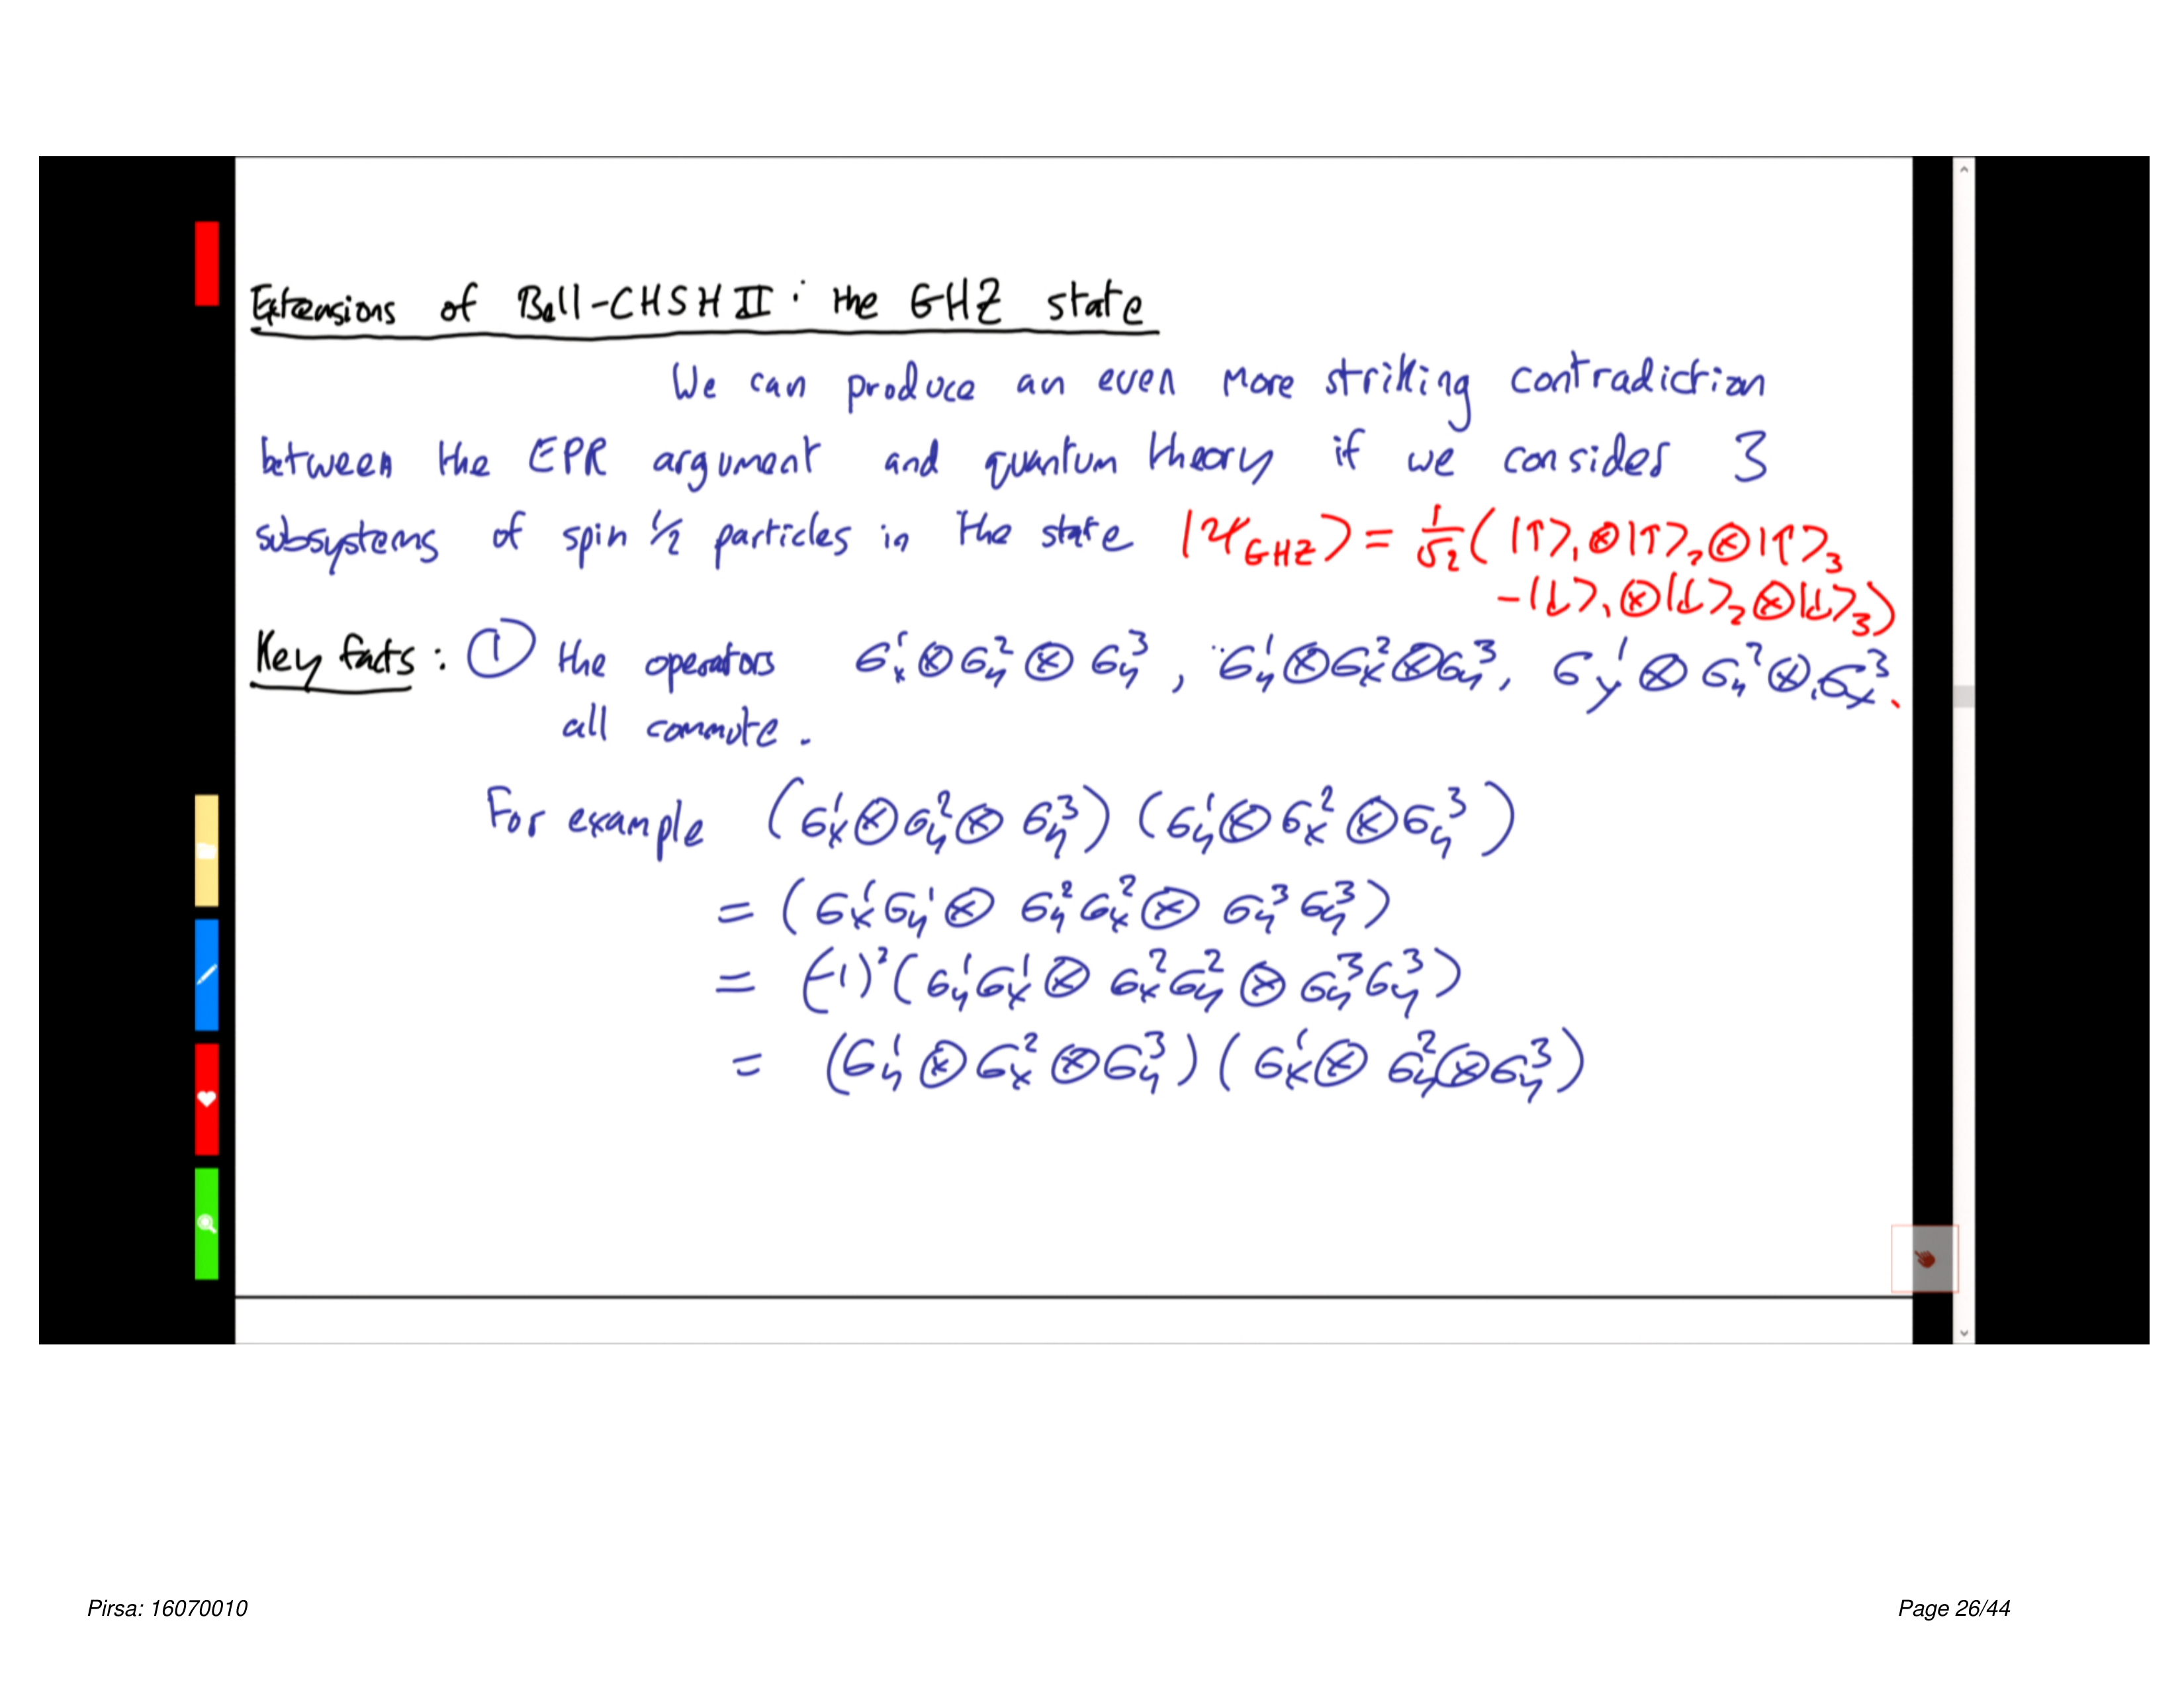 Extensions of Bell-CHSH II: the GHZ state
We can produce an even more striking contradiction
between the EPR argument and quantum theory if we consider 3
subsystems of spin ½ particles in the state |Ψ_GHZ⟩ = 1/√2 (|↑⟩₁⊗|↑⟩₂⊗|↑⟩₃
-|↓⟩₁⊗|↓⟩₂⊗|↓⟩₃)
Key facts: ① the operators σₓ¹⊗σᵧ²⊗σᵧ³, σᵧ¹⊗σₓ²⊗σᵧ³, σᵧ¹⊗σᵧ²⊗σₓ³.
all commute.
For example (σₓ¹⊗σᵧ²⊗σᵧ³)(σᵧ¹⊗σₓ²⊗σᵧ³)
= (σₓ¹σᵧ¹⊗σᵧ²σₓ²⊗σᵧ³σᵧ³)
= (-1)²(σᵧ¹σₓ¹⊗σₓ²σᵧ²⊗σᵧ³σᵧ³)
= (σᵧ¹⊗σₓ²⊗σᵧ³)(σₓ¹⊗σᵧ²⊗σᵧ³)
Pirsa: 16070010
Page 26/44